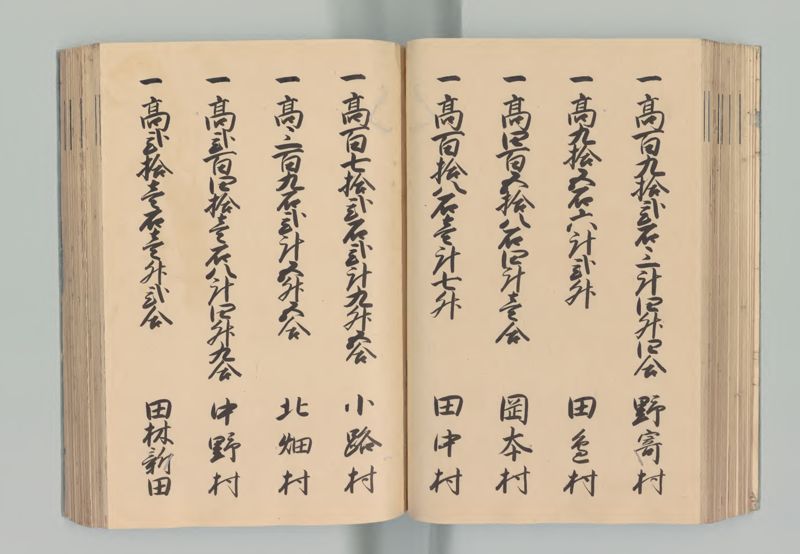 一高百九拾弐石三斗四升四合 野寄村
一高九拾五石六斗弐升 田邊村
一高四百五拾八石四斗壱合 岡本村
一高百拾八石壱斗七升 田中村
一高百七拾弐石弐斗九升五合 小路村
一高三百九石弐斗五升五合 北畑村
一高弐百四拾壱石八斗四升九合 中野村
一高弐拾壱石壱升弐合 田林新田